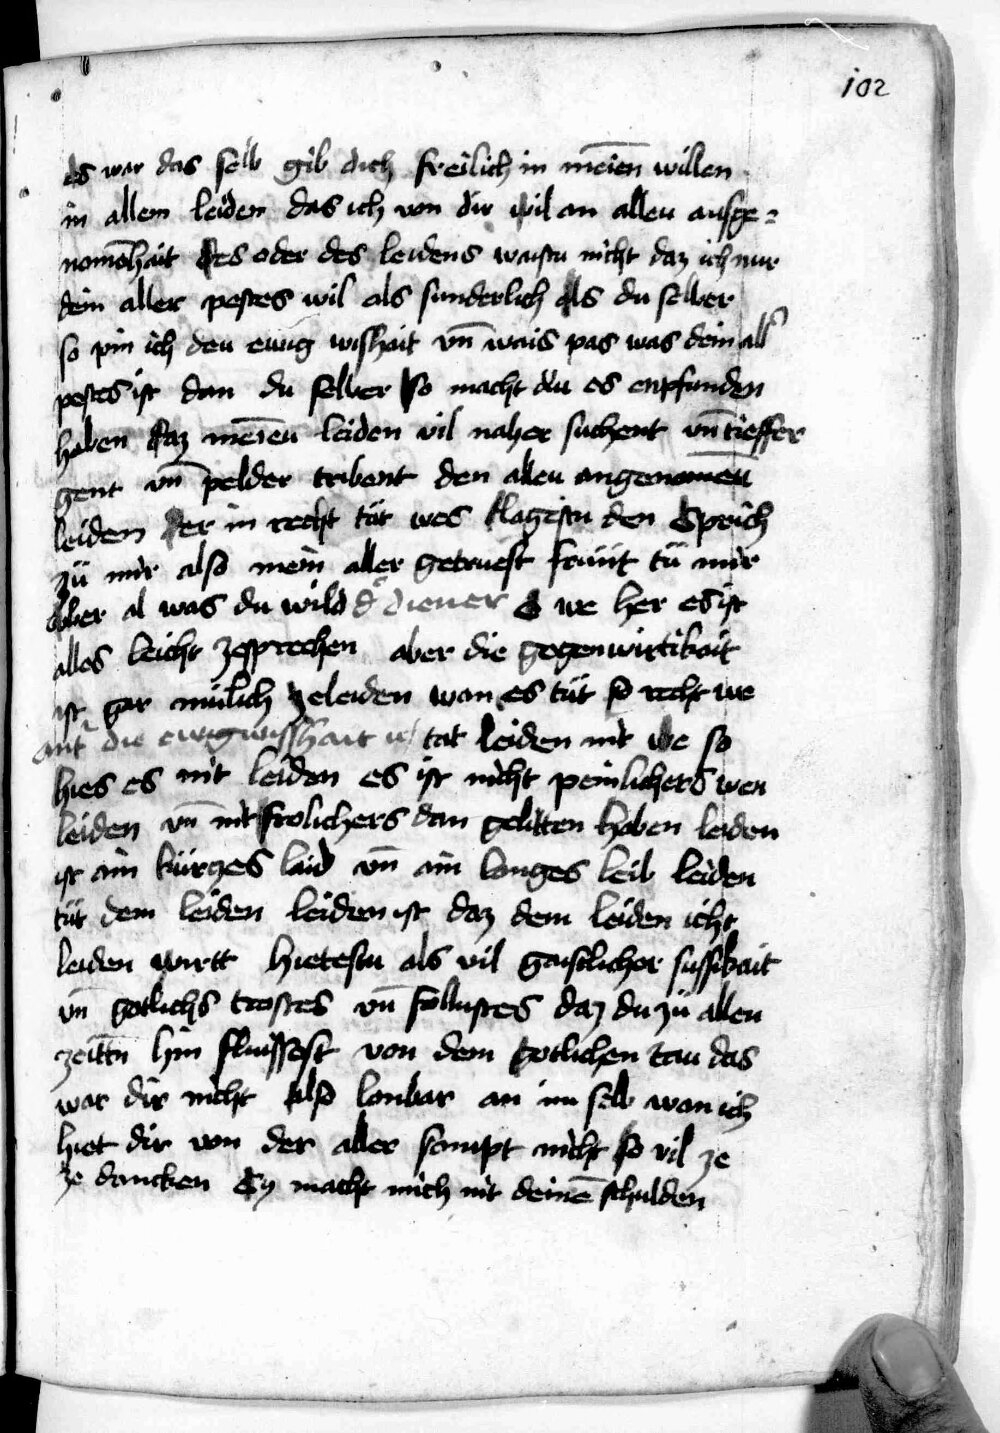 102
es war das selb gib dich freilich in meīen willen
in allem leiden das ich von dir wil an allen ausge=
nomēhait des oder des leidens waistu nicht daz ich nur
dein aller pestes wil als sunderlich als du selber
so pin ich deu ewig wishait vn̄ wais pas was dein all
pestes ist dan du selber so macht du es enpfunden
haben daz meīeu leiden vil naher suchent vn̄ tieffer
gent vn̄ pelder tribent den alleu angenomeū
leiden der im recht tüt wes klagestu den Sprich
zü mir also mein aller getruest frünt tü mir
ober al was du wild d diener O we her es ist
alles leicht zesprechen aber die gegenwirtikait
ist gar mülich zeleiden wan es tüt so recht we
ant die ewig wisshait tät leiden nit we so
hies es nit leiden es ist nicht peinlichers wen
leiden vn̄ nit frolichers dan gelitten haben leiden
ist ain kürczes laid vn̄ ain langes leib leiden
tüt dem leiden leiden ist daz dem leiden icht
leiden wirtt hietestu als vil gaistlicher sussikait
vn̄ gotlichs trostes vn̄ follustes daz du zü allen
zeittn hin flüssest von dem gotlichen tau das
war dir nicht also lonbar an im selb wan ich
hiet dir von der aller sampt nicht so vil ze
ze dancken Ey macht mich nit deinē schulden